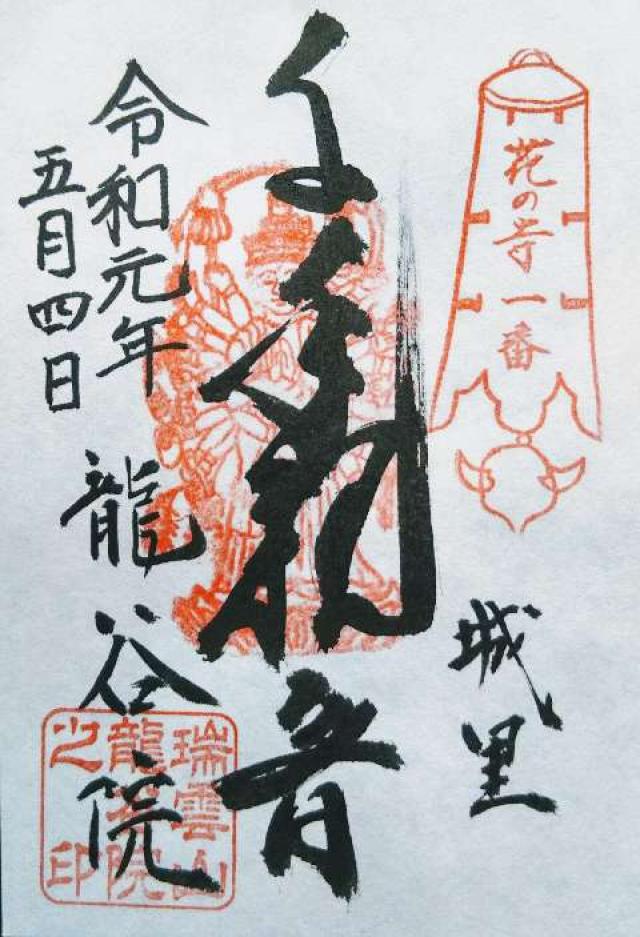 花の寺一番
城里
千手観音
令和元年
五月四日
龍谷院
瑞雲山
龍谷院
之印